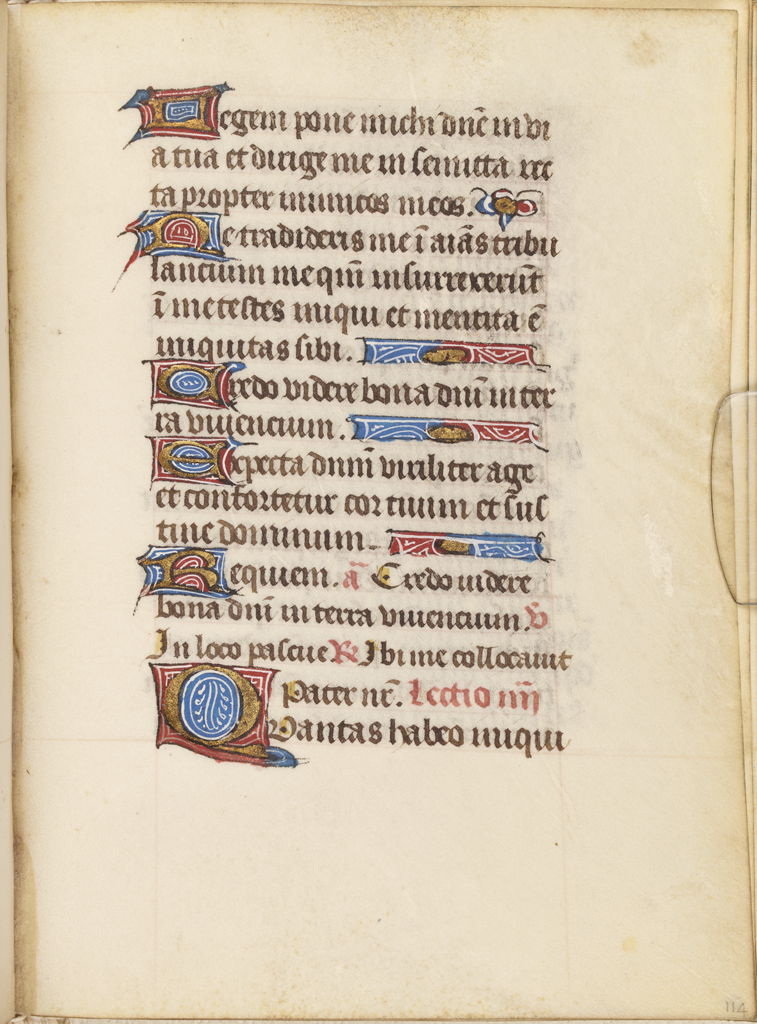 Legem pone michi dn̄e in vi
a tua et dirige me in semitta rec
ta propter inimicos meos.
Ne tradideris me ī aīas tribu
lancium me qm̄ insurrexerūt
ī me testes iniqui et mentita ē
iniquitas sibi.
Credo videre bona dnī in ter
ra viuencium.
Expecta dnm̄ viriliter age
et confortetur cor tuum et sus
tine dominum
Requiem. a᷃ Credo videre
bona dnī in terra viuencium. v᷃
In loco pascue R Ibi me collocauit
Pater nr̄. Lectio iiij
Quantas habeo iniqui
114